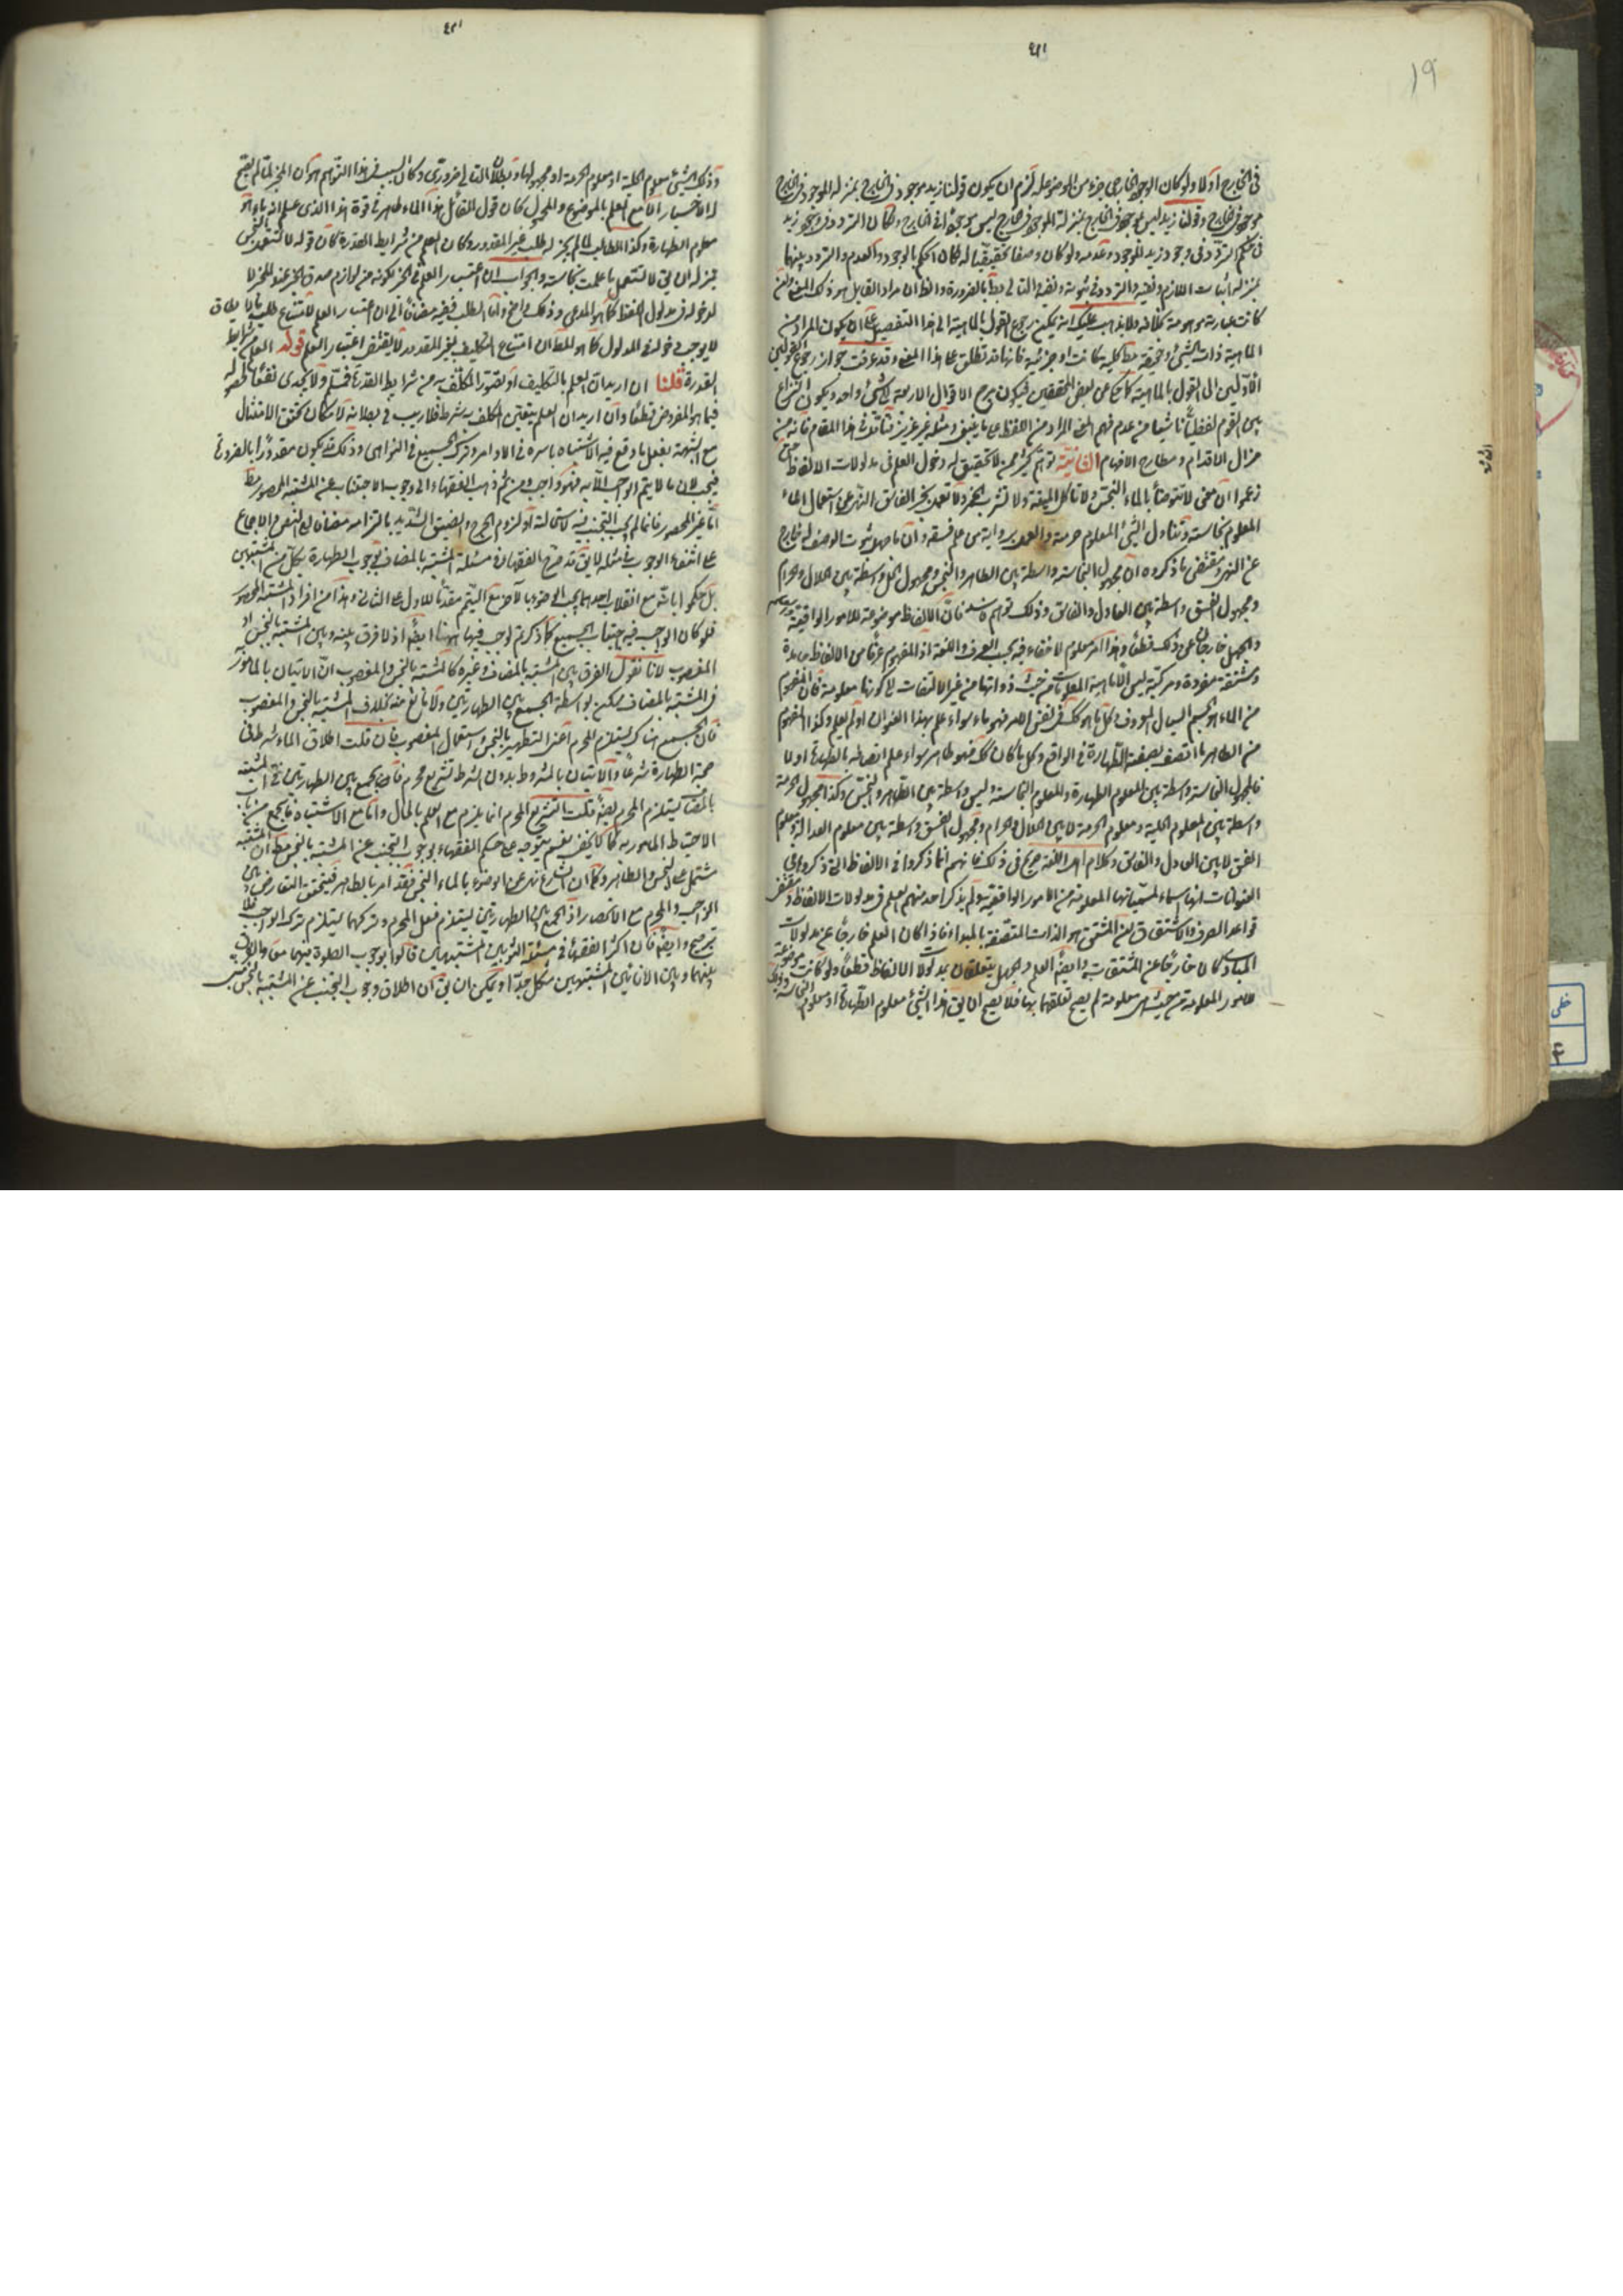 ١٩
في الخارج اولا ولو كان الوجود الخارجي جزء من الموضوع له لزم ان يكون قولنا زيد موجود في الخارج بمنزلة الموجود في الخارج
موجود في الخارج وقولنا زيد ليس بموجود في الخارج بمنزلة الموجود في الخارج ليس موجودا في الخارج ولكان التردد في وجود زيد
في حكم التردد في وجود زيد الموجود وعدمه ولو كان وصفا حقيقيا له لكان الحكم بالوجود والعدم والتردد بينهما
بمنزلة اثبات اللازم ونفيه والتردد في ثبوته ونفيه والتالي بط بالضرورة والظ ان مراد القايل هو ذلك المعنى وان
كانت عبارته موهمة خلافه ولا يذهب عليك انه يمكن رجوع القول بالماهية الى هذا التفصيل على ان يكون المراد من
الماهية ذات الشيء وحقيقته مط كلية كانت او جزئية فانها قد تطلق على هذا المعنى وقد عرفت جواز رجوع القولين
الاولين الى القول بالماهية كما حكي عن بعض المحققين فيكون مرجع الاقوال الاربعة الى شيء واحد ويكون النزاع
بين القوم لفظيا ناشيا من عدم فهم المراد من اللفظ على ما ينبغي ومثله غير عزيز فتامل في هذا المقام فانه من
مزال الاقدام ومطارح الافهام الثانية توهم كثير ممن لا تحقيق له دخول العلم في مدلولات الالفاظ حتى
زعموا ان معنى لا تتوضأ بالماء النجس ولا تاكل الميتة ولا تشرب الخمر ولا تعمل بخبر الفاسق النهي عن استعمال الماء
المعلوم نجاسته وتناول الشيء المعلوم حرمته والعمل برواية من علم فسقه وان ما جهل ثبوت الوصف له خارج
عن النهي ومقتضى ما ذكروه ان مجهول النجاسة واسطة بين الطاهر والنجس ومجهول الحل واسطة بين الحلال والحرام
ومجهول الفسق واسطة بين العادل والفاسق وذلك توهم فاسد فان الالفاظ موضوعة للامور الواقعية والعلم
والجهل خارجان عن ذلك قطعا وهذا امر معلوم لا خفاء فيه بحسب العرف واللغة اذ المفهوم عرفا من الالفاظ جامدة
ومشتقة مفردة ومركبة ليس الا ماهية المعلومات من حيث ذواتها من غير الالتفات الى كونها معلومة فان المفهوم
من الماء هو الجسم السيال المعروف فكل ما هو كك في نفس الامر فهو ماء سواء علم بهذا العنوان او لم يعلم وكذا المفهوم
من الطاهر ما اتصف بصفة الطهارة في الواقع وكل ما كان كك فهو طاهر سواء علم اتصافه بالطهارة او لا
فالمجهول النجاسة واسطة بين المعلوم الطهارة والمعلوم النجاسة وليس واسطة بين الطاهر والنجس وكذا المجهول الحرمة
واسطة بين المعلوم الحلية ومعلوم الحرمة لا بين الحلال والحرام ومجهول الفسق واسطة بين معلوم العدالة ومعلوم
الفسق لا بين العادل والفاسق وكلام اهل اللغة صريح في ذلك فانهم انما ذكروا في الالفاظ التي ذكروا معاني
العنوانات انها اسماء لمسمياتها المعلومة من الامور الواقعية ولم يذكر احد منهم العلم في مدلولات الالفاظ ومقتضى
قواعد الصرف والاشتقاق ان المشتق هو الذات المتصفة بالمبداء فاذا كان العلم خارجا عن مدلولات
المبادي كان خارجا عن المشتقات وايضا العلم والجهل يتعلقان بمدلولات الالفاظ قطعا ولو كانت موضوعة
للامور المعلومة من حيث هي معلومة لم يصح تعلقهما بها فلا يصح ان يق هذا الشيء معلوم الطهارة او معلوم النجاسة
وذلك الشيء معلوم الحلية او معلوم الحرمة او مجهولها وبطلان التالي ضروري وكان السبب في هذا التوهم هو ان المخبر لما لم يصح
له الاخبار الا مع العلم بالموضوع والمحمول كان قول القائل هذا الماء طاهر في قوة هذا الذي علم انه ماء هو
معلوم الطهارة وكذا الطالب لما لم يجز له طلب غير المقدور وكان العلم من شرايط القدرة كان قوله لا تستعمل النجس
بمنزلة ان يق لا تستعمل ما علمت نجاسته والجواب ان اعتبار العلم في الخبر لكونه من لوازم صدق الخبر عند المخبر لا
لدخوله في مدلول اللفظ كما هو المدعى وذلك واضح واما الطلب ففيه مضافا الى ان اعتبار العلم لامتناع طلب ما لا يطاق
لا يوجب دخوله في المدلول كما هو المط ان امتناع التكليف بغير المقدور لا يقتضي اعتبار العلم قوله العلم من شرايط
القدرة قلنا ان اريد ان العلم بالتكليف او تصور المكلف به من شرايط القدرة فمسلم ولا يجدي نفعا لحصوله
فيما هو المفروض قطعا وان اريد ان العلم بتعيين المكلف به شرط فلا ريب في بطلانه لامكان تحقق الامتثال
مع الشبهة بفعل ما وقع فيه الاشتباه باسره في الاوامر وترك الجميع في النواهي وذلك قد يكون مقدورا بالضرورة
فيجب لان ما لا يتم الواجب الا به فهو واجب ومن ثم ذهب الفقهاء الى وجوب الاجتناب عن المشتبه المحصور مط
اما غير المحصور فانما لم يجب التجنب فيه لاستحالته او لزوم الحرج والضيق الشديد بالتزامه مضافا الى النص والاجماع
على انتفاء الوجوب في مثله لا يق قد صرح الفقهاء في مسئلة المشتبه بالمضاف بوجوب الطهارة بكل من المشتبهين
بل حكموا بانه مع انقلاب احدهما يجب الوضوء بالاخر مع التيمم مقدما للاول على الثاني وهذا من افراد المشتبه المحصور
فلو كان الواجب فيه اجتناب الجميع كما ذكرتم لوجب فيها هيهنا ايضا اذ لا فرق بينه وبين المشتبه بالنجس او
المغصوب لانا نقول الفرق بين المشتبه بالمضاف وغيره كالمشتبه بالنجس والمغصوب ان الاتيان بالمامور به
في المشتبه بالمضاف ممكن بواسطة الجمع بين الطهارتين ولا مانع منه بخلاف المشتبه بالنجس والمغصوب
فان الجمع هناك يستلزم المحرم اعني التطهير بالنجس واستعمال المغصوب فان قلت اطلاق الماء شرط في
صحة الطهارة شرعا والاتيان بالمشروط بدون الشرط تشريع محرم فالجمع بين الطهارتين في المشتبه
بالمضاف يستلزم المحرم ايضا قلت التشريع المحرم انما يلزم مع العلم بالحال واما مع الاشتباه فالجمع من باب
الاحتياط المامور به كما لا يخفى نعم يتوجه على حكم الفقهاء بوجوب التجنب عن المشتبه بالنجس مط ان المشتبه
مشتمل على النجس والطاهر وكما ان الشارع نهى عن الوضوء بالماء النجس فقد امر بالطاهر فيتحقق التعارض بين
الواجب والمحرم مع الانحصار اذ الجمع بين الطهارتين يستلزم فعل المحرم وتركهما يستلزم ترك الواجب فلا
ترجيح وايضا فان اكثر الفقهاء في مسئلة الثوبين المشتبهين قالوا بوجوب الصلوة فيهما معا والفرق
بينهما وبين الانائين المشتبهين مشكل جدا ويمكن ان يق ان اطلاق وجوب التجنب عن المشتبه بالنجس